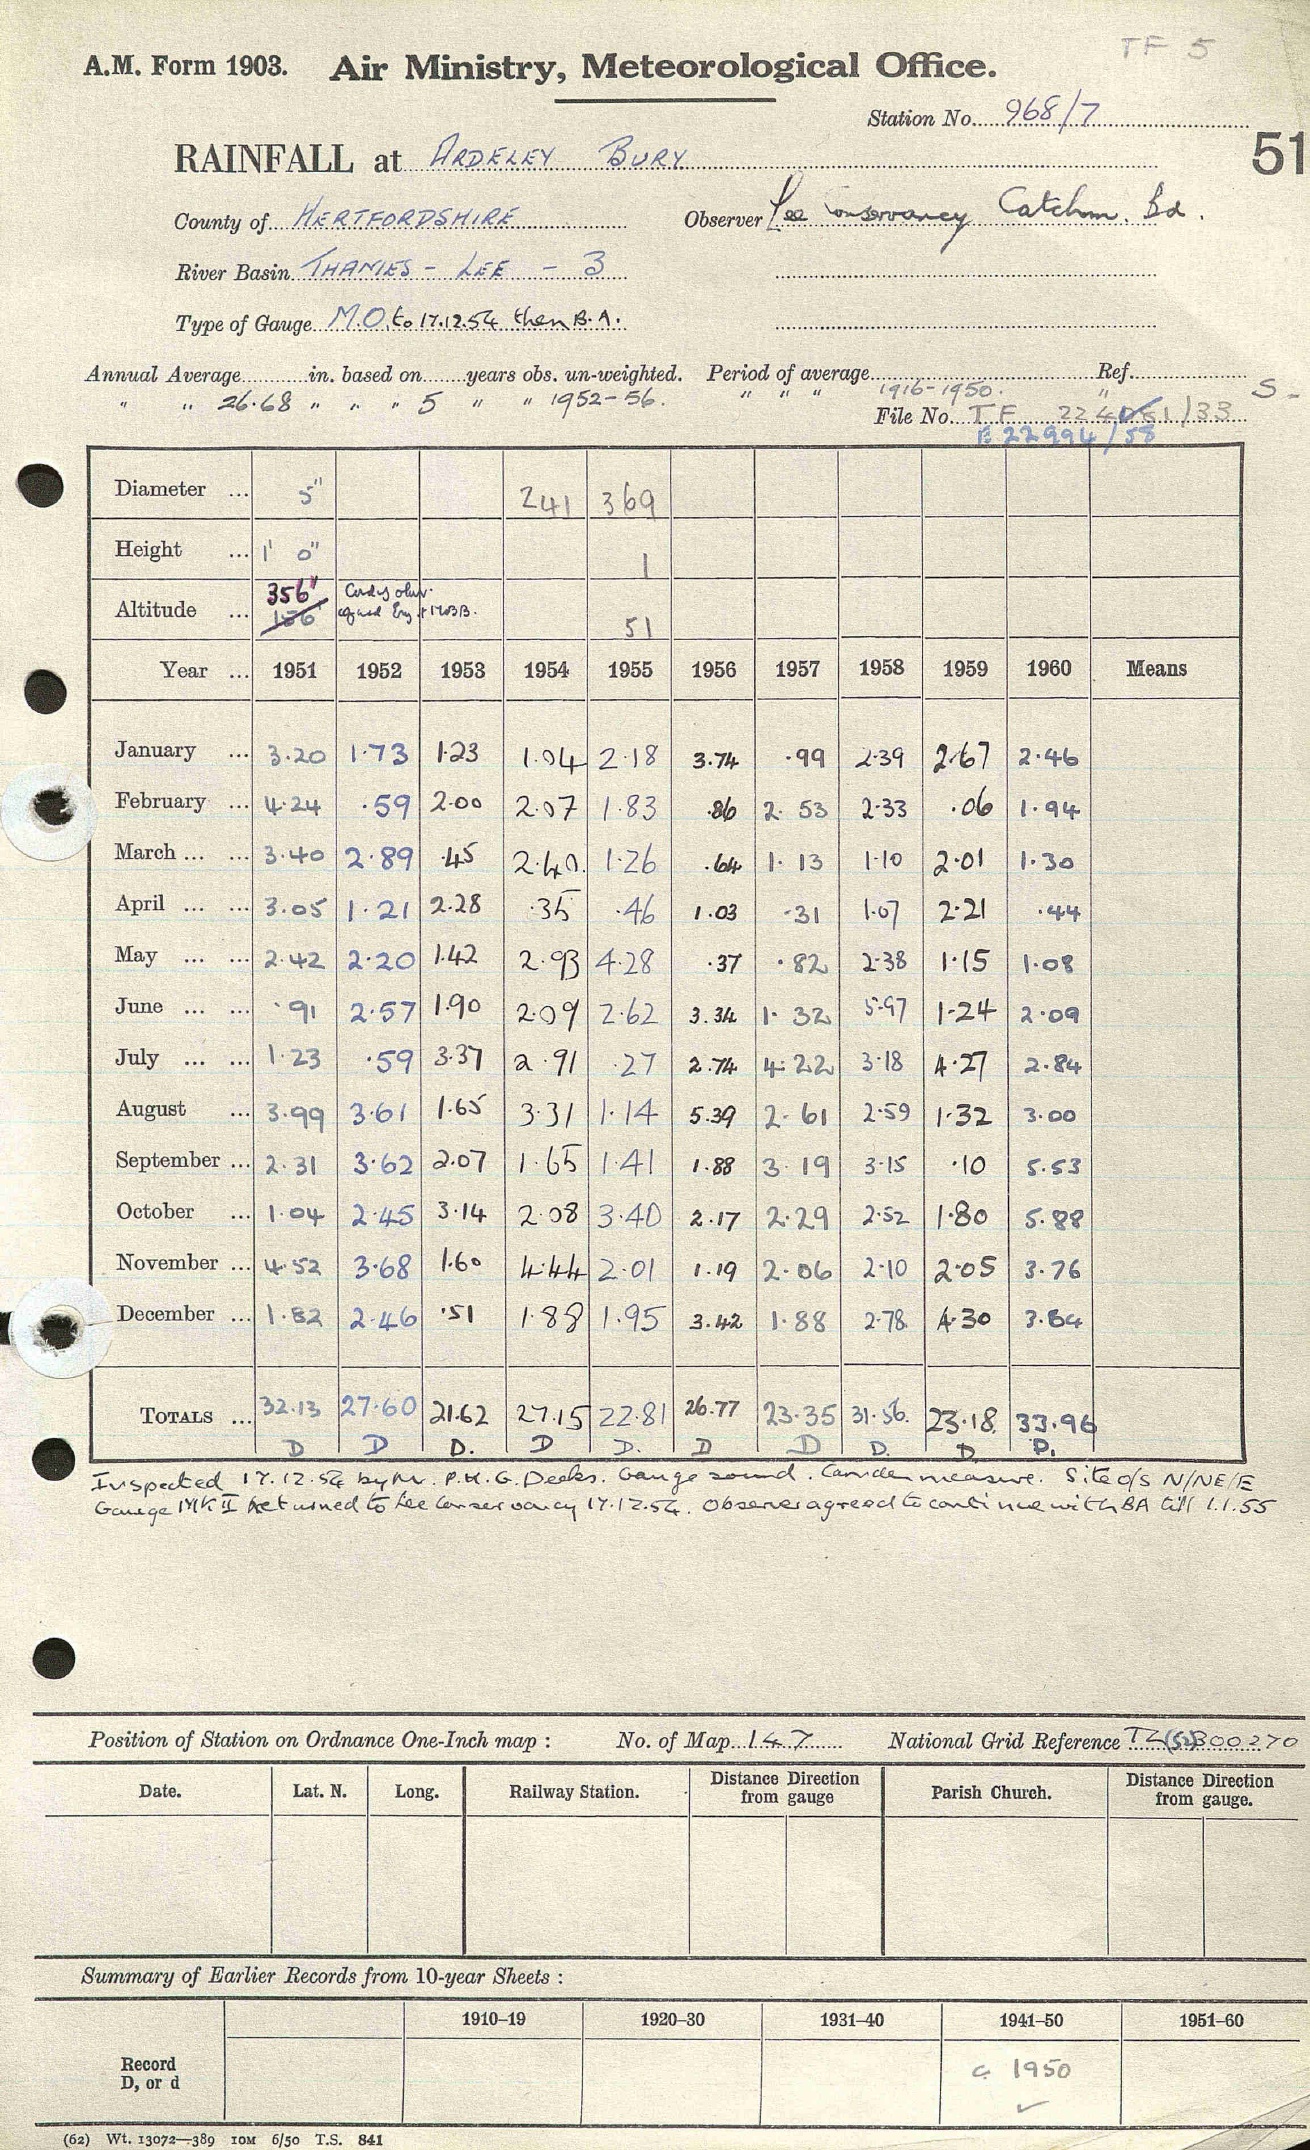 TF 5
A.M. Form 1903. Air Ministry, Meteorological Office.
Station No. 968/7
51
RAINFALL at ARDELEY BURY
County of HERTFORDSHIRE Observer Lee Conservancy Catchm. Bd.
River Basin THAMES - LEE - 3
Type of Gauge M.O. to 17.12.54 then B.A.
Annual Average in. based on years obs. un-weighted. Period of average Ref.
" " 26.68 " " " 5 " " 1952-56. " " " 1916-1950. " S -
File No. TF 224 /33
E 22994/58
Diameter ... 5" 241 369
Height ... 1' 0" 1
Altitude ... 356" 156 51
Year ... 1951 1952 1953 1954 1955 1956 1957 1958 1959 1960 Means
January ... 3.20 1.73 1.23 1.04 2.18 3.74 .99 2.39 2.67 2.46
February ... 4.24 .59 2.00 2.07 1.83 .86 2.53 2.33 .06 1.94
March ... ... 3.40 2.89 .45 2.40 1.26 .64 1.13 1.10 2.01 1.30
April ... ... 3.05 1.21 2.28 .35 .46 1.03 .31 1.07 2.21 .44
May ... ... 2.42 2.20 1.42 2.93 4.28 .37 .82 2.38 1.15 1.08
June ... ... .91 2.57 1.90 2.09 2.62 3.34 1.32 5.97 1.24 2.09
July ... ... 1.23 .59 3.37 2.91 .27 2.74 4.22 3.18 4.27 2.84
August ... 3.99 3.61 1.65 3.31 1.14 5.39 2.61 2.59 1.32 3.00
September ... 2.31 3.62 2.07 1.65 1.41 1.88 3.19 3.15 .10 5.53
October ... 1.04 2.45 3.14 2.08 3.40 2.17 2.29 2.52 1.80 5.88
November ... 4.52 3.68 1.60 4.44 2.01 1.19 2.06 2.10 2.05 3.76
December ... 1.82 2.46 .51 1.88 1.95 3.42 1.88 2.78 4.30 3.64
TOTALS ... 32.13 27.60 21.62 27.15 22.81 26.77 23.35 31.56. 23.18. 33.96
D D D. D D. D D D. D D.
Inspected 17.12.54 by Mr. P.H.G. Deeks. Gauge sound. Camden measure. Site o/s N/NE/E
Gauge MK II returned to Lee Conservancy 17.12.54. Observer agreed to continue with BA till 1.1.55
Position of Station on Ordnance One-Inch map : No. of Map 147 National Grid Reference TL(52)300270
Date. Lat. N. Long. Railway Station. Distance Direction from gauge Parish Church. Distance Direction from gauge.
Summary of Earlier Records from 10-year Sheets :
1910–19 1920–30 1931–40 1941–50 1951–60
Record
D, or d
c. 1950
(62) Wt. 13072—389 10M 6/50 T.S. 841